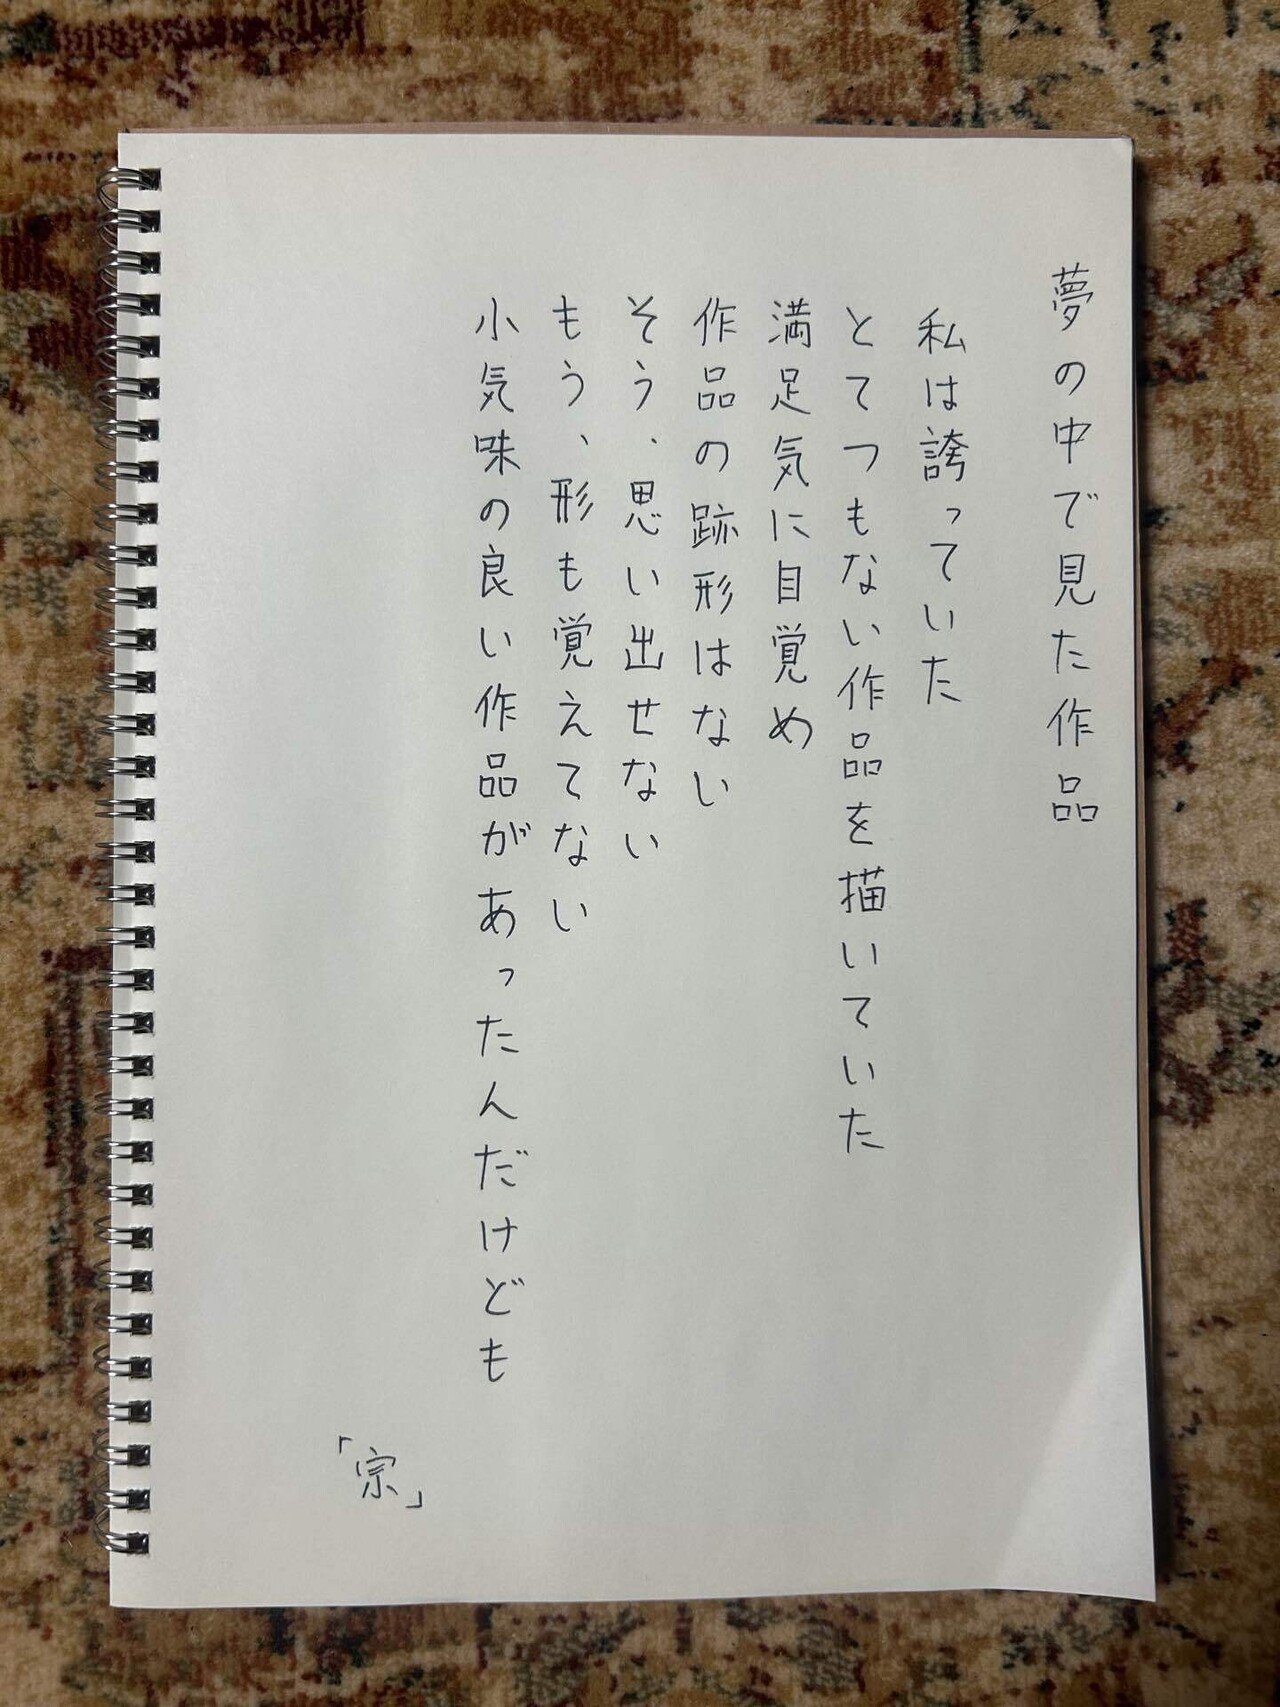 夢の中で見た作品
私は誇っていた
とてつもない作品を描いていた
満足気に目覚め
作品の跡形はない
そう、思い出せない
もう、形も覚えてない
小気味の良い作品があったんだけども
「宗」